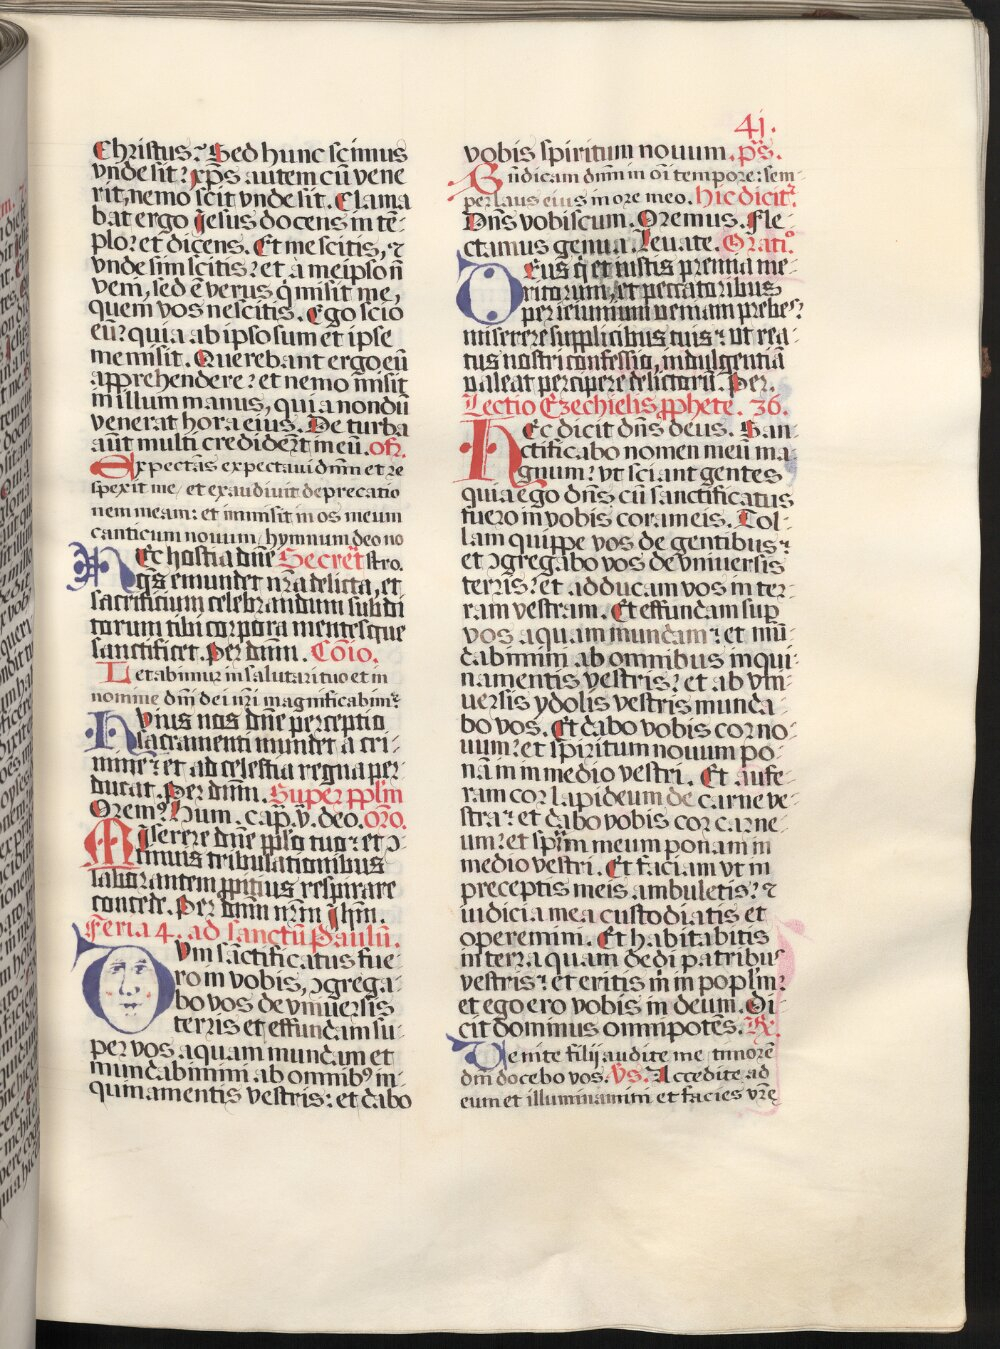 41.
Christus? Sed hunc scimus
vnde sit? xp̄s autem cū vene
rit, nemo scit vnde sit. Clama
bat ergo Jesus docens in tē-
plo: et dicens. Et me scitis, ⁊
vnde sim scitis: et a meipso nō
veni, sed ē verus q̇ misit me,
quem vos nescitis. Ego scio
eū: quia ab ipso sum et ipse
me misit. Querebant ergo eū
apprehendere: et nemo misit
in illum manus, quia nondū
venerat hora eius. De turba
aūt multi credidert̄ in eū. ofr̄.
Expectās expectaui dn̄m et re
spexit me, et exaudiuit deprecatio
nem meam: et immisit in os meum
canticum nouum, hymnum deo no
Ec hostia dn̄e Secret̄ stro.
qs̄ emundet nr̄a delicta, et
sacrificium celebrandum subdi
torum tibi corpora mentesque
sanctificet. Per dn̄m. Cōīo.
Letabimur in salutari tuo et in
nomine dn̄i dei nr̄i magnificabimꝰ
Huius nos dn̄e perceptio
sacramenti mundet a cri-
mine: et ad celestia regna per
ducat. Per dn̄m. Super pplm̄
Oremꝰ. Hum. cap. v. deo. oro.
Miserere dn̄e pplo tuo: et ↄ-
tinuis tribulationibus
laborantem ppitius respirare
concede. Per dn̄m nrm̄ Jhm̄.
Feria 4. ad sanctū Paulū.
Cum sāctificatus fue-
ro in vobis, ↄgrega-
bo vos de vniuersis
terris et effundam su-
per vos aquam mundam et
mundabimini ab omnibꝰ in-
quinamentis vestris: et dabo
vobis spiritum nouum. ps̄.
Bn̄dicam dn̄m in oī tempore: sem-
per laus eius in ore meo. hic dicit᷑
Dn̄s vobiscum. Oremus. Fle-
ctamus genua. Leuate. Oratio
Deus q̇ et iustis premia me-
ritorum, et peccatoribus
per ieiunium veniam prebes:
miserere supplicibus tuis: ut rea-
tus nostri confessio, indulgentiā
valeat percipere delictorū. Per.
Lectio Ezechielis pphete. 36.
Hec dicit dn̄s deus. San-
ctificabo nomen meū ma-
gnum: vt sciant gentes
quia ego dn̄s cū sanctificatus
fuero in vobis coram eis. Tol-
lam quippe vos de gentibus:
et ↄgregabo vos de vniuersis
terris: et adducam vos in ter-
ram vestram. Et effundam sup
vos aquam mundam: et mū-
dabimini ab omnibus inqui-
namentis vestris: et ab vni-
uersis ydolis vestris munda-
bo vos. Et dabo vobis cor no-
uum: et spiritum nouum po-
nam in medio vestri. Et aufe-
ram cor lapideum de carne ve-
stra: et dabo vobis cor carne-
um: et spm̄ meum ponam in
medio vestri. Et faciam vt in
preceptis meis ambuletis: ⁊
iudicia mea custodiatis et
operemini. Et habitabitis
in terra quam dedi patribus
vestris: et eritis mi in poplm:
et ego ero vobis in deum. Di-
cit dominus omnipotēs. R̄.
Uenite filij audite me, timorē
dn̄i docebo vos. Vs̄. Accedite ad
eum et illuminamini et facies vr̄ę